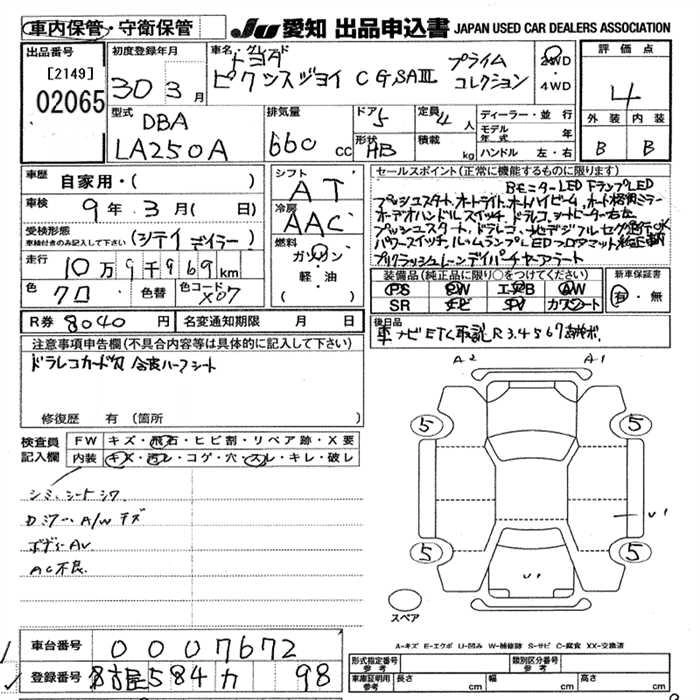 車内保管・守衛保管
JU 愛知 出品申込書 JAPAN USED CAR DEALERS ASSOCIATION
出品番号
[2149]
02065
初度登録年月
30年3月
車名・グレード
トヨタ
ピクシスジョイ C G,SAⅢ プライム コレクション
2WD
・4WD
評価点
4
外装 内装
B B
型式
DBA
LA250A
排気量
660 cc
ドア
5
形状
HB
定員
4人
積載
kg
ディーラー・並行
モデル年式 年
ハンドル 左・右
車歴
自家用・( )
車検
9年3月( )
受検形態
車検付きのみ記入して下さい
(シテイ デイラー)
走行
10万9千969km
色
クロ
色替
色コード
X07
シフト
AT
冷房
AAC
燃料
ガソリン
・軽油
( )
セールスポイント(正常に機能するものに限ります)
BモニターLED FランプLED
プッシュスタート,オートライト,オートハイビーム,オート格納ミラー
オーデオハンドルスイッチ,ドラレコ,シートヒーター右左
プッシュスタート,ドラレコ,地デジフルセグ
パワースイッチ,ルームランプLED フロアマット
装備品(純正品に限り○をつけてください)
PS PW エアB AW
SR ナビ TV カワシート
新車保証書
有・無
後日品
R券 8040 円
名変通知期限 月 日
車 ナビ ETC 取説 R3.4567
注意事項申告欄(不具合内容等は具体的に記入して下さい)
ドラレコカード欠 合皮ハーフシート
修復歴 有(箇所
検査員
記入欄
FW キズ・飛石・ヒビ割・リペア跡・X要
内装 キズ・汚レ・コゲ・穴・スレ・キレ・破レ
シミ,シートシワ
Dミラー A/W キズ
ボディーAU
AC不良
A2 A1
5 5
5 5
U1
U1
スペア
A-キズ E-エクボ U-凹み W-補修跡 S-サビ C-腐食 XX-交換済
車台番号
0007672
登録番号
名古屋584カ 98
形式指定番号
参考
類別区分番号
参考
車庫証明用
参考
長さ cm
幅 cm
高さ cm